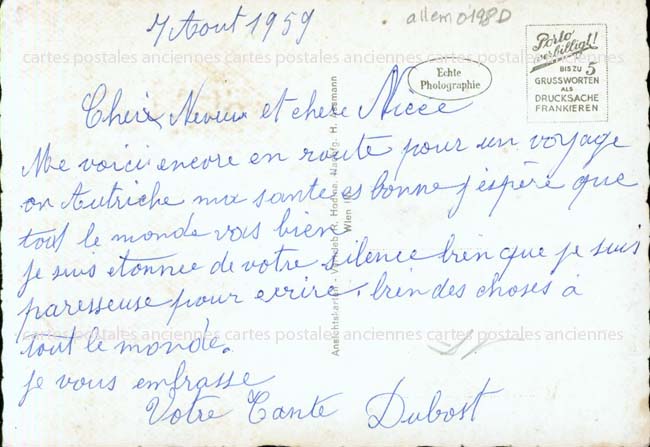 7 Aout 1959
allem 0198D
Porto verbilligt!
BIS ZU 5
GRUSSWORTEN
ALS
DRUCKSACHE
FRANKIEREN
Echte
Photographie
Cheri Neveu et chere Niece
Me voici encore en route pour un voyage
on Autriche ma sante es bonne j'espère que
tout le monde vas bien
je suis etonnee de votre silence bien que je suis
paresseuse pour ecrire. bien des choses à
tout le monde.
je vous embrasse
Votre Tante Dubost
Ansichtskarten Wien
cartes postales anciennes cartes postales anciennes cartes postales anciennes
cartes postales anciennes cartes postales anciennes cartes postales anciennes